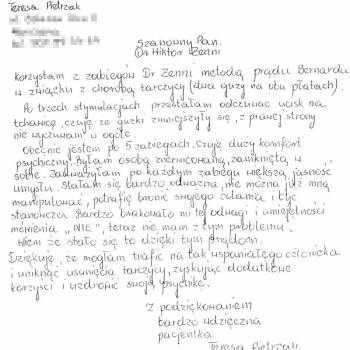 Teresa Pietrzak
ul.
Warszawa
tel.
Szanowny Pan.
Dr Wiktor Zenni
Korzystam z zabiegów Dr Zenni metodą prądu Bernardu
w związku z chorobą tarczycy (dwa guzy na obu płatach).
Po trzech stymulacjach przestałam odczuwać ucisk na
tchawicę, czuję że guzki zmniejszyły się, z prawej strony
nie wyczuwam w ogóle.
Obecnie jestem po 5 zabiegach. Czuję duży komfort
psychiczny. Byłam osobą znerwicowaną, zamkniętą w
sobie. Zauważyłam po każdym zabiegu większą jasność
umysłu. Stałam się bardzo odważna, nie można już mną
manipulować, potrafię bronić swojego zdania i być
stanowcza. Bardzo brakowało mi tej odwagi i umiejętności
mówienia „NIE", teraz nie mam z tym problemu.
Wiem że stało się to dzięki tym prądom.
Dziękuję, że mogłam trafić na tak wspaniałego człowieka
i uniknąć usunięcia tarczycy, zyskując dodatkowe
korzyści i uzdrowić swoją psychikę.
Z podziękowaniem
bardzo wdzięczna
pacjentka
Teresa Pietrzak